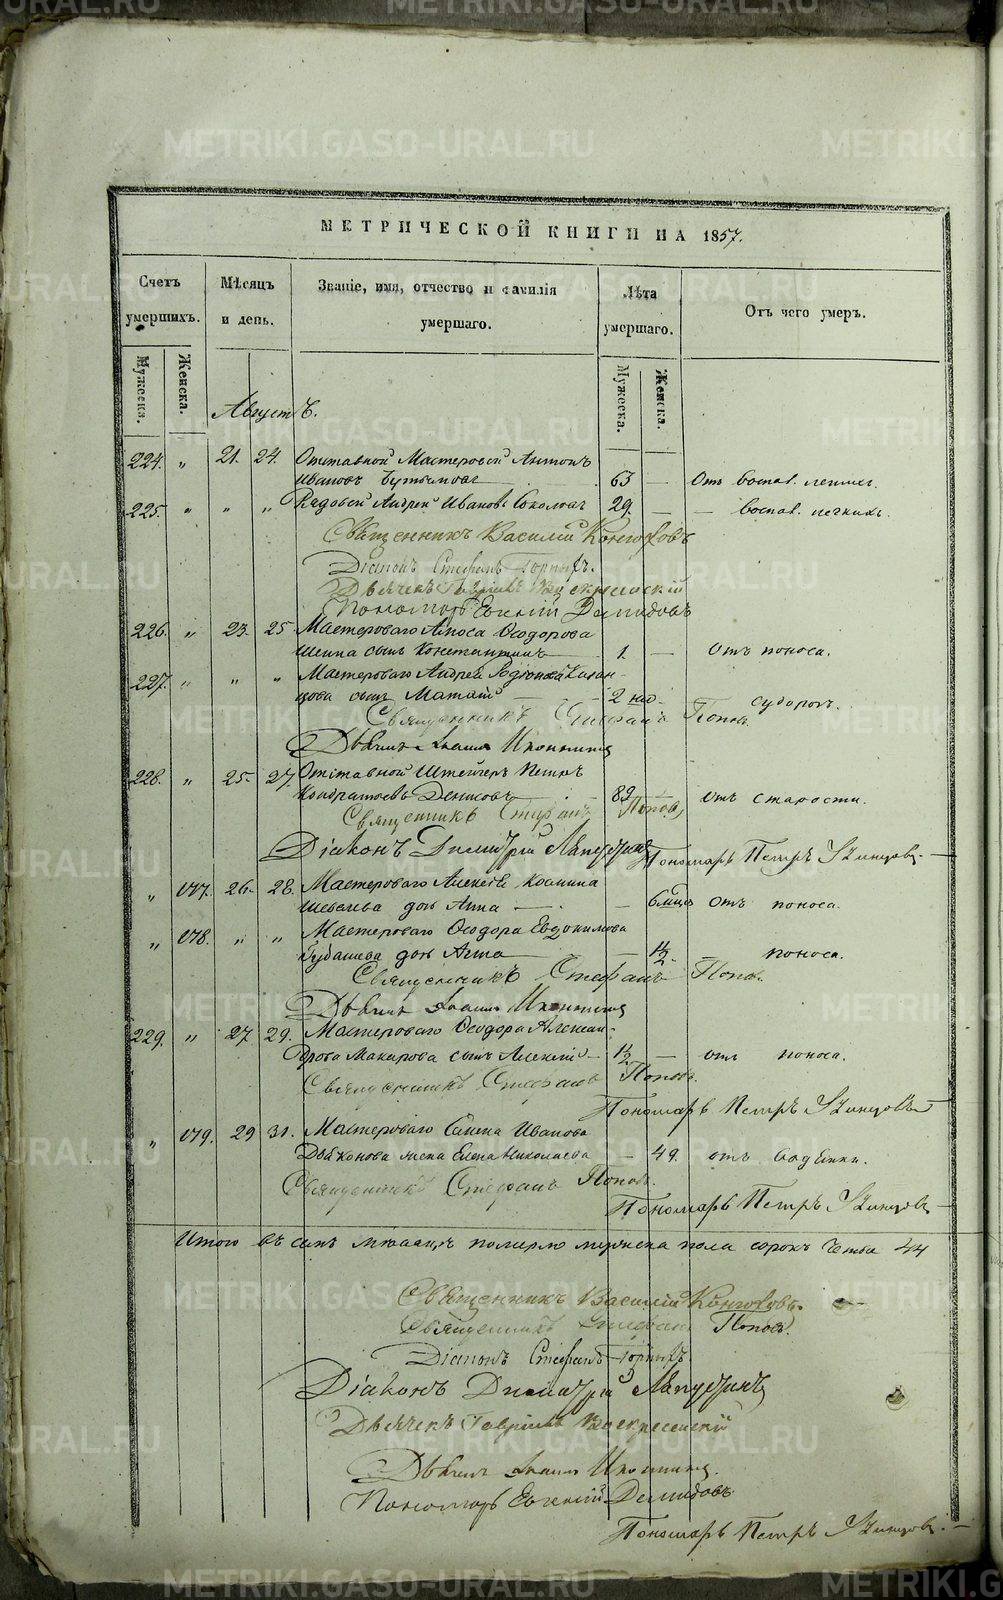 МЕТРИЧЕСКОЙ КНИГИ НА 1857.
Счетъ умершихъ.
Мѣсяцъ и день.
Званіе, имя, отчество и фамилія умершаго.
Лѣта умершаго.
Отъ чего умеръ.
Мужеска.
Женска.
Мужеска.
Женска.
Августъ.
224. " 21. 24. Отставной Мастеровой Антонъ
Ивановъ 63 — Отъ воспал. легких.
225. " " " Рядовой Андрей Ивановъ Соколовъ 29. — — воспал. легкихъ.
Священникъ Василій Конюховъ
Діаконъ Стефанъ Горныхъ.
Дьячекъ Гавріилъ Воскресенскій
Пономарь Евгеній Демидовъ
226. " 23. 25. Мастероваго Ѳеодорова
сынъ Константинъ 1. — Отъ поноса.
227. " " " Мастероваго Андрея
сынъ 2 нед. — судорог.
Священникъ Стефанъ Поповъ.
Дьячекъ Иконниковъ
228. " 25. 27. Отставной Штейгеръ Петръ
Кондратьевъ Денисовъ 89 отъ старости.
Священникъ Стефанъ Поповъ
Діаконъ Димитрій
Пономарь Петръ Удинцовъ. —
" 177. 26. 28. Мастероваго Алексѣя Козмина
дочь Анна — — 6 мцов отъ поноса.
" 178. " " Мастероваго Ѳеодора Евдокимова
дочь Анна — 1½ — поноса.
Священникъ Стефанъ Поповъ.
Дьячекъ Иконниковъ
229. " 27 29. Мастероваго Ѳеодора Алексан-
дрова Макарова сынъ Алексѣй — 1½ — отъ поноса.
Священникъ Стефанъ Поповъ.
Пономарь Петръ Удинцовъ
" 179. 29 31. Мастероваго Семена Иванова
жена Елена Николаева — 49. отъ водянки.
Священникъ Стефанъ Поповъ.
Пономарь Петръ Удинцовъ —
Итого въ семъ мѣсяцѣ померло мужеска пола сорокъ четыре 44
Священникъ Василій Конюховъ.
Священникъ Стефанъ Поповъ.
Діаконъ Стефанъ Горныхъ.
Діаконъ Димитрій
Дьячекъ Гавріилъ Воскресенскій
Дьячекъ Иконниковъ
Пономарь Евгеній Демидовъ
Пономарь Петръ Удинцовъ. —
METRIKI.GASO-URAL.RU